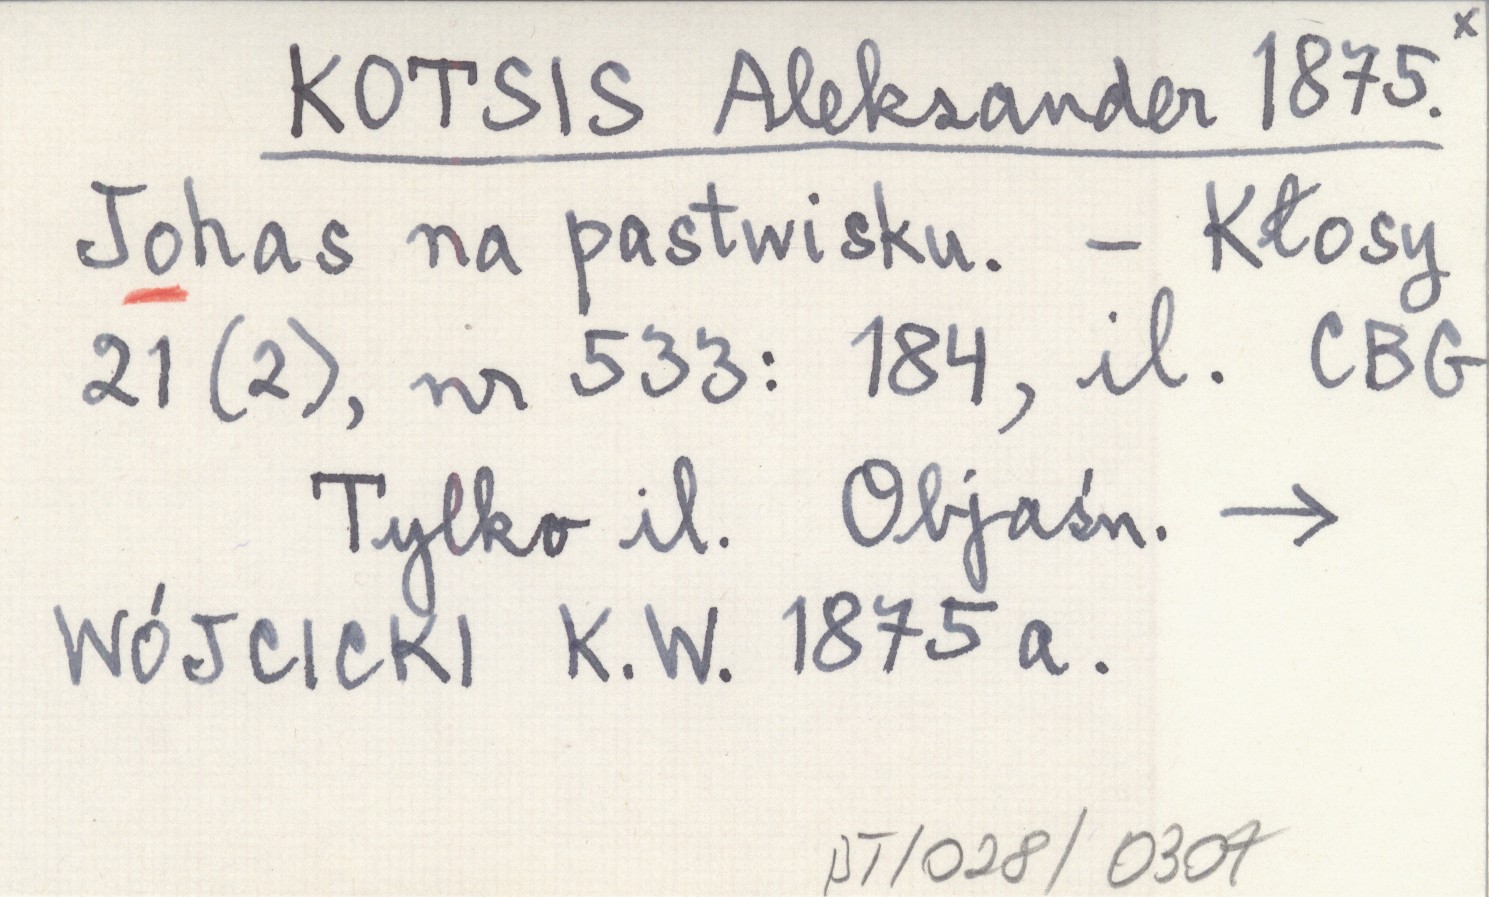 x
KOTSIS Aleksander 1875.
Johas na pastwisku. – Kłosy
21 (2), nr 533: 184, il. CBG
Tylko il. Objaśn. →
WÓJCICKI K.W. 1875 a.
pT/028/0307